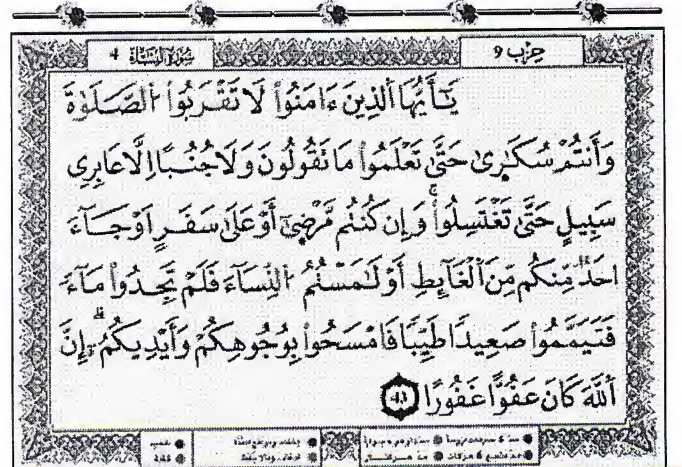 حزب 9
سورة النساء 4
يَٰٓأَيُّهَا ٱلذِينَ ءَامَنُوا۟ لَا تَقْرَبُوا۟ ٱلصَّلَوٰةَ
وَأَنتُمْ سُكَٰرٜىٰ حَتَّىٰ تَعْلَمُوا۟ مَا تَقُولُونَ وَلَا جُنُباً اِلَّا عَابِرِى
سَبِيلٍ حَتَّىٰ تَغْتَسِلُوا۟ۖ وَإِن كُنتُم مَّرْضٜىٰٓ أَوْ عَلَىٰ سَفَرٍ اَوْ جَآءَ
اَحَدٌ مِّنكُم مِّنَ ٱلْغَآئِطِ أَوْ لَٰمَسْتُمُ ٱلنِّسَآءَ فَلَمْ تَجِدُوا۟ مَآءً
فَتَيَمَّمُوا۟ صَعِيدًا طَيِّبًا فَامْسَحُوا۟ بِوُجُوهِكُمْ وَأَيْدِيكُمُۥٓۖ إِنَّ
ٱللَّهَ كَانَ عَفُوًّا غَفُورًا